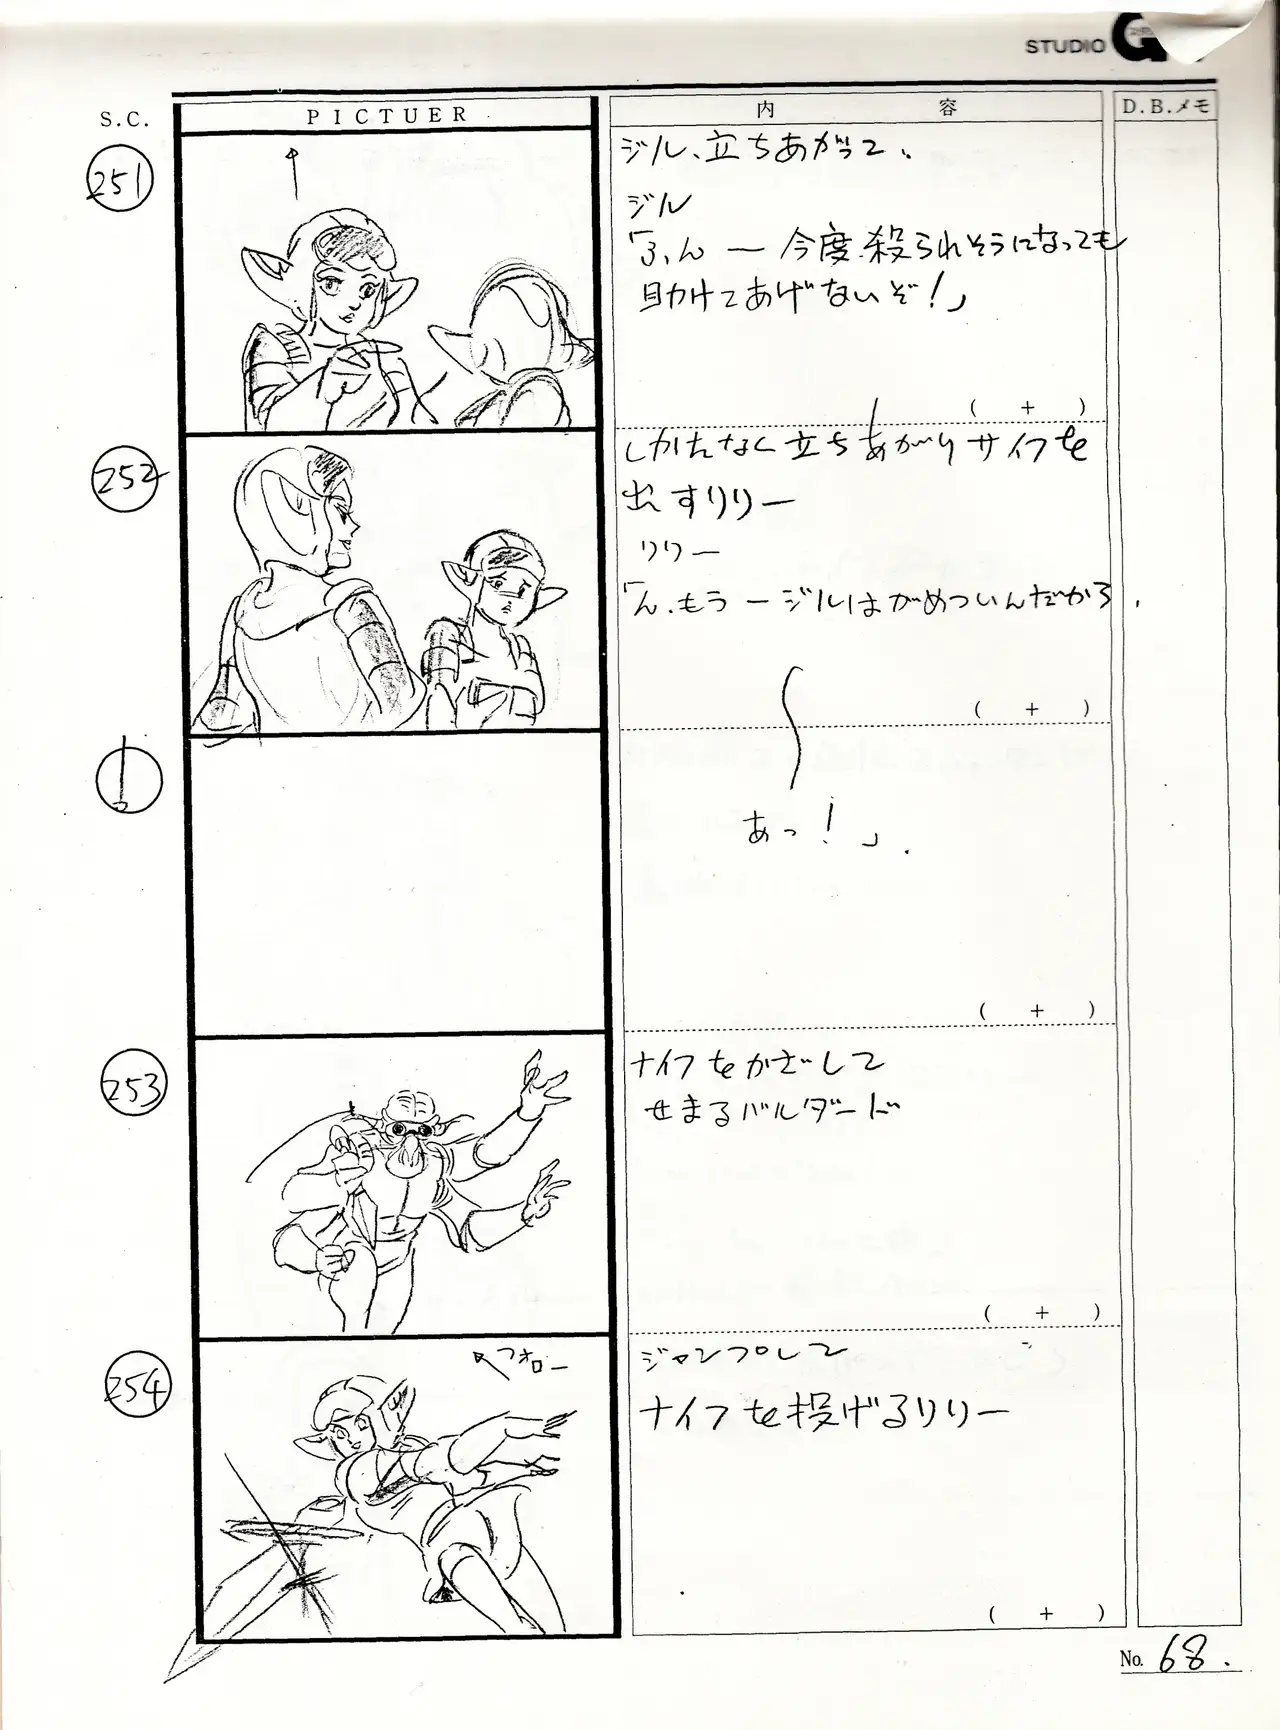 STUDIO G
S.C.
PICTUER
内容
D.B.メモ
251
ジル、立ちあがって、
ジル
「ふん ー 今度殺られそうになっても
助けてあげないぞ!」
( + )
252
しかたなく立ちあがりサイフを
出すリリー
リリー
「ん、もう ー ジルはがめついんだから、
( + )
あっ!」.
( + )
253
ナイフをかざして
せまるバルダード
( + )
254
フォロー
ジャンプして
ナイフを投げるリリー
( + )
No. 68.